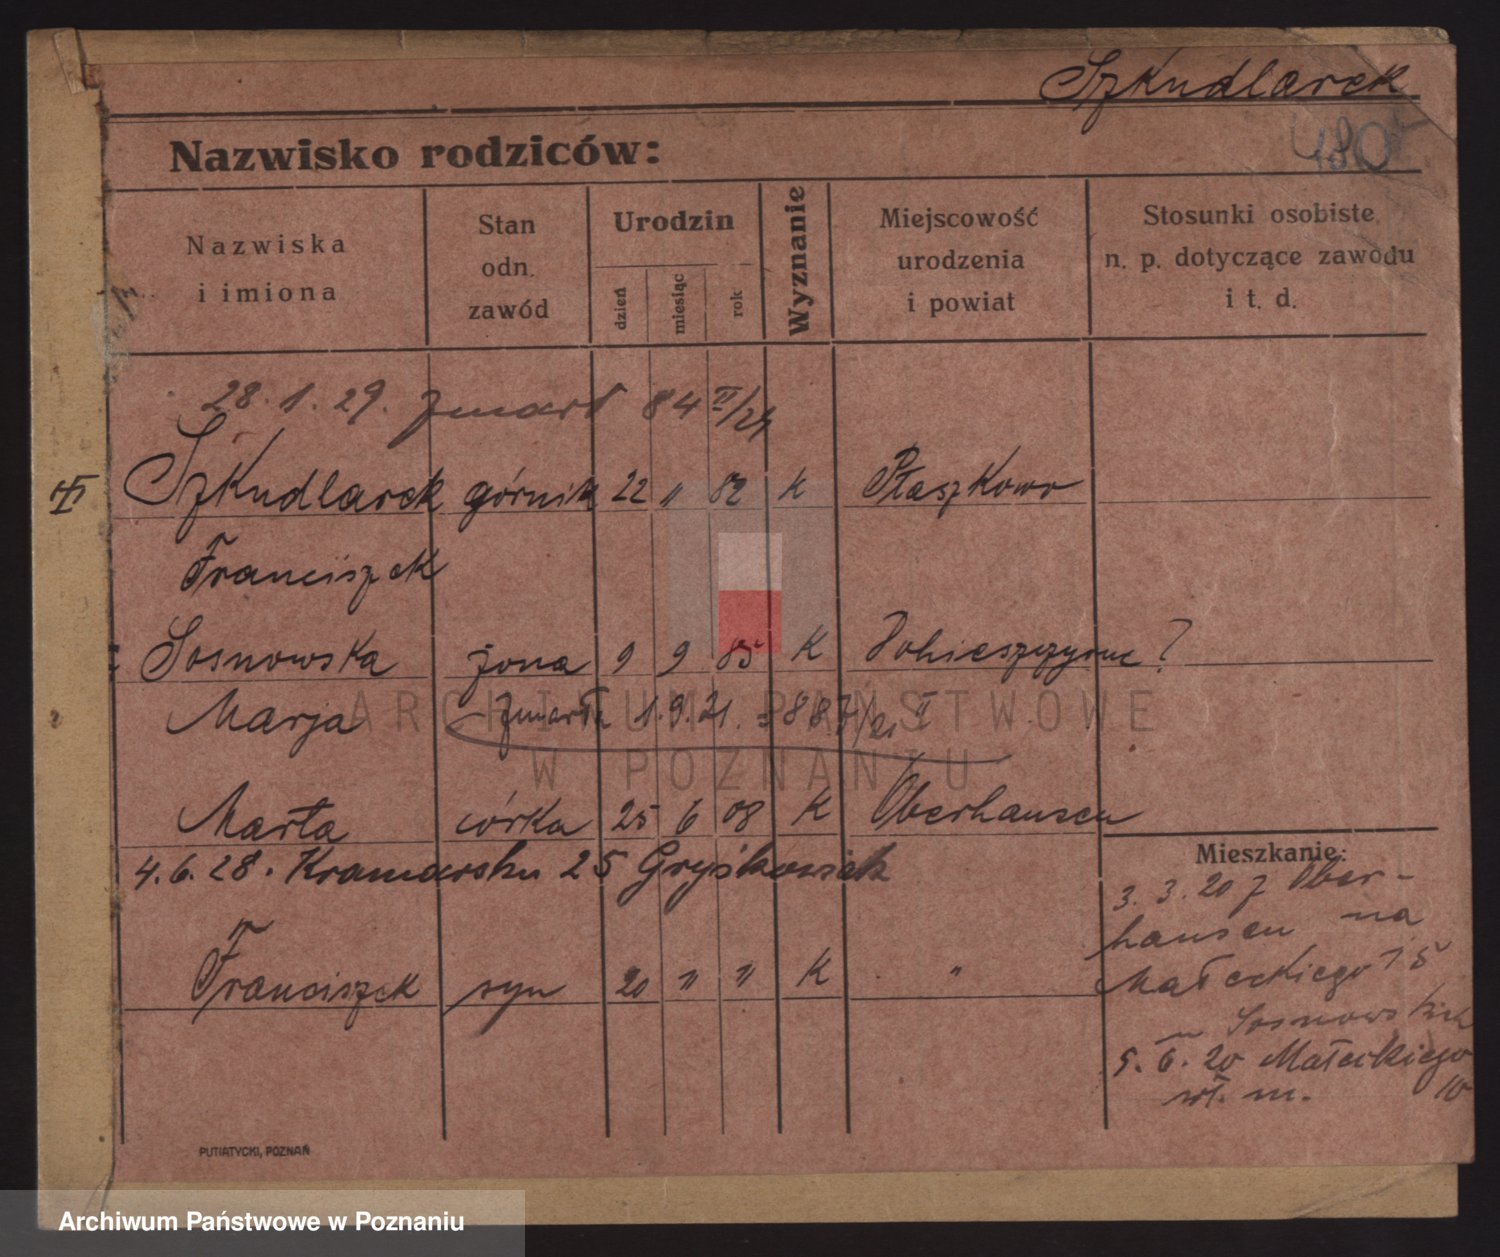 Szkudlarek
480
Nazwisko rodziców:
Nazwiska i imiona
Stan odn. zawód
Urodzin
dzień miesiąc rok
Wyznanie
Miejscowość urodzenia i powiat
Stosunki osobiste, n. p. dotyczące zawodu i t. d.
28. 1. 29. zmarł 84 II/29
Szkudlarek górnik 22 " 82 K Ptaszkowo
Franciszek
Sosnowska żona 9 9 85 K ?
Marja zmarła 1.9.21. = 887/21 II
Marta córka 25 6 08 K Oberhausen
4.6.28. 25
Franciszek syn 20 " " K "
Mieszkanie:
3. 3. 20 z Ober-
hausen na
Małeckiego 15
u Sosnowskich
5. 6. 20 Małeckiego
wł. m. 10
PUTIATYCKI, POZNAŃ
ARCHIWUM PAŃSTWOWE
W POZNANIU
Archiwum Państwowe w Poznaniu